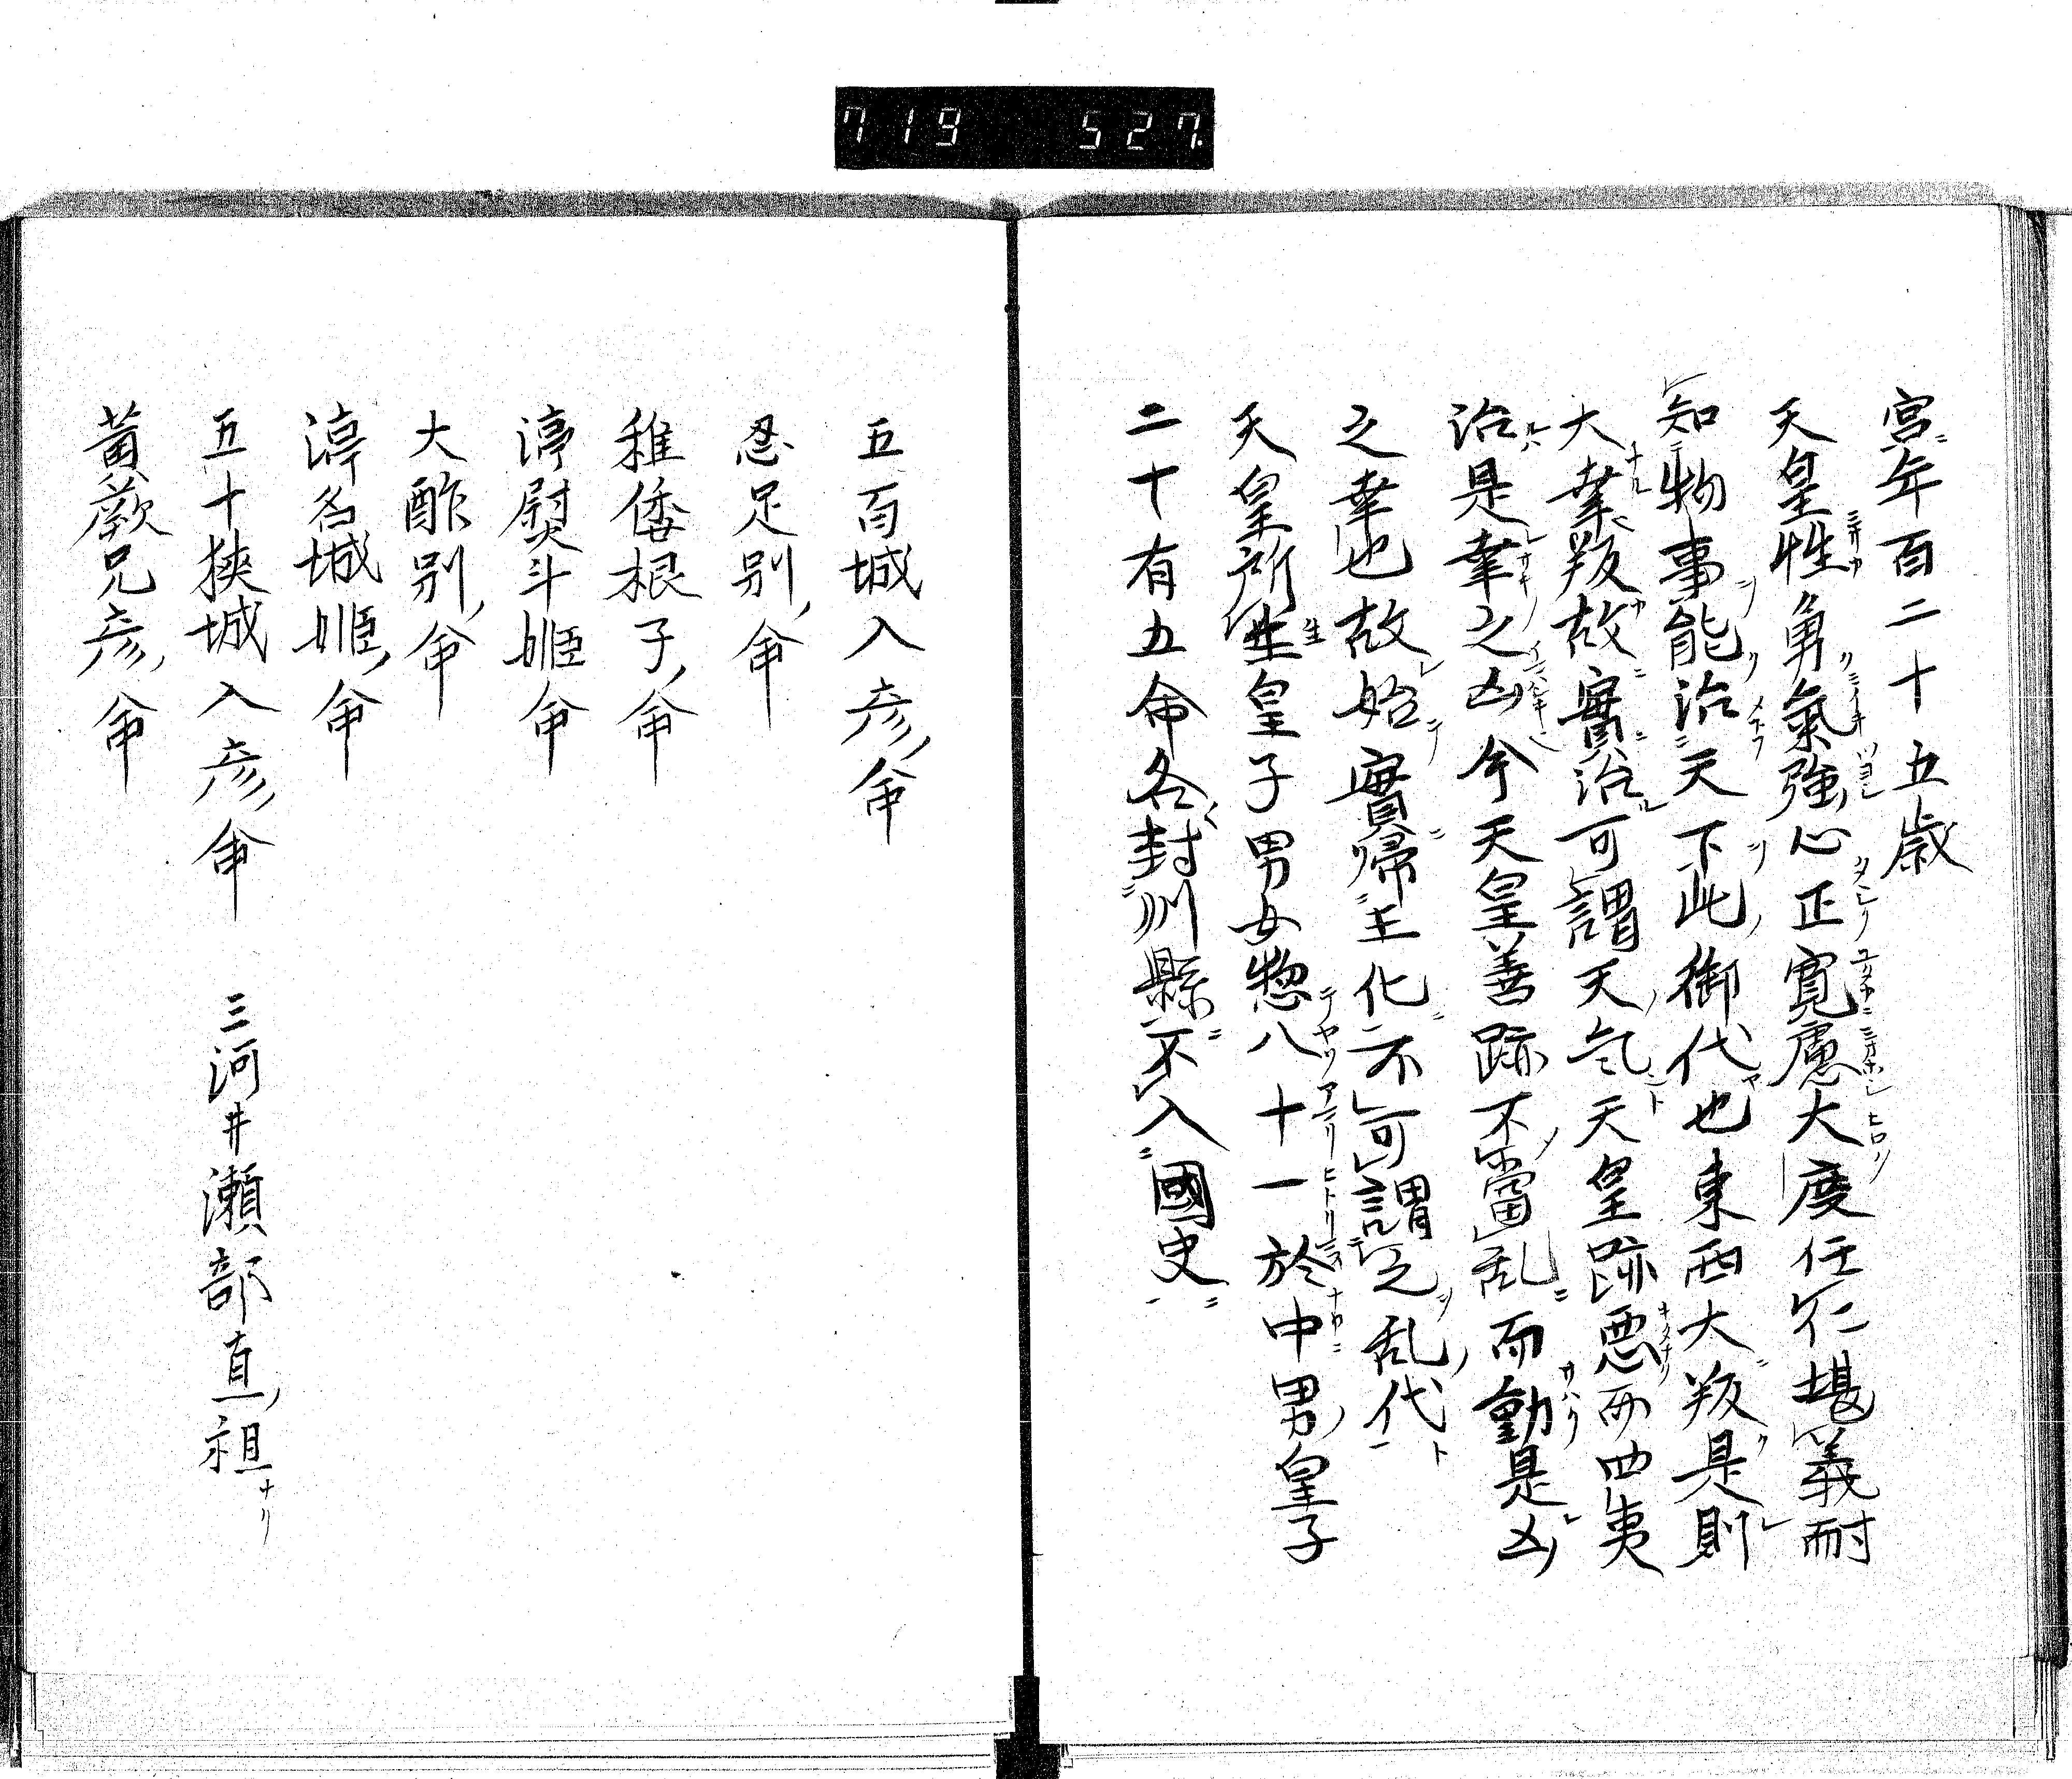 719 527.
宮年百二十五歳
天皇性勇氣強心正寛慮大度任仁堪義耐
知物事能治天下此御代也東西大叛是則
大幸叛故實治可謂天気天皇跡悪而四夷
治是幸之凶今天皇善跡不當乱而動是凶
之幸也故始實帰王化不可謂之乱代
天皇所生皇子男女惣八十一於中男皇子
二十有五命各封州縣不入國史
五百城入彦命
忍足別命
稚倭根子命
渟熨斗姫命
大酢別命
渟名城姫命
五十狭城入彦命 三河井瀬部直祖ナリ
黄蕨兄彦命